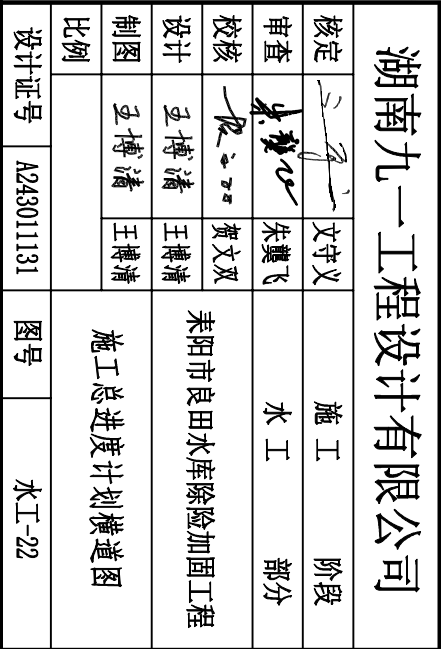 湖南九一工程设计有限公司
核定 文守义 施工 阶段
审查 朱龑飞 水工 部分
校核 贺文双 耒阳市良田水库除险加固工程
设计 王博清 王博清
制图 王博清 王博清 施工总进度计划横道图
比例
设计证号 A243011131 图号 水工-22